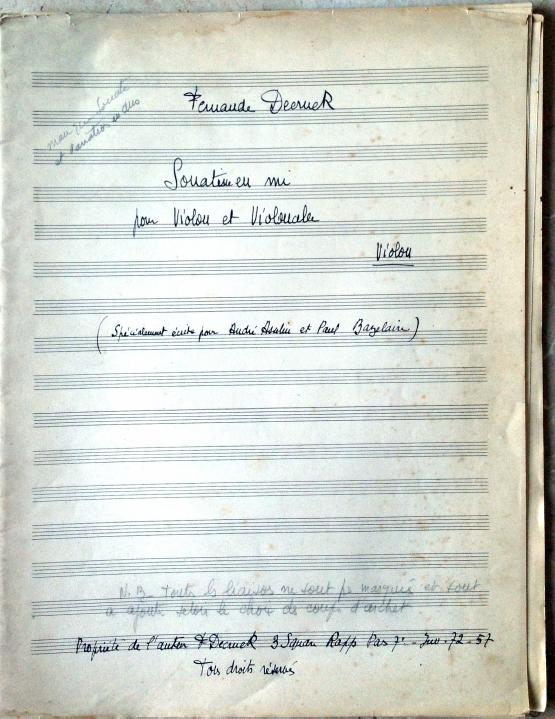 Fernande Decruck
Sonatine en mi
pour Violon et Violoncelle
Violon
(Spécialement écrite pour André Asselin et Paul Bazelaire)
N.B- toutes les liaisons ne sont pas marquées et sont
a ajouter selon le choix de coups d'archet
Propriété de l'auteur F Decruck 3 Square Rapp Paris 7e - Inv. 72-57
Tous droits réservés